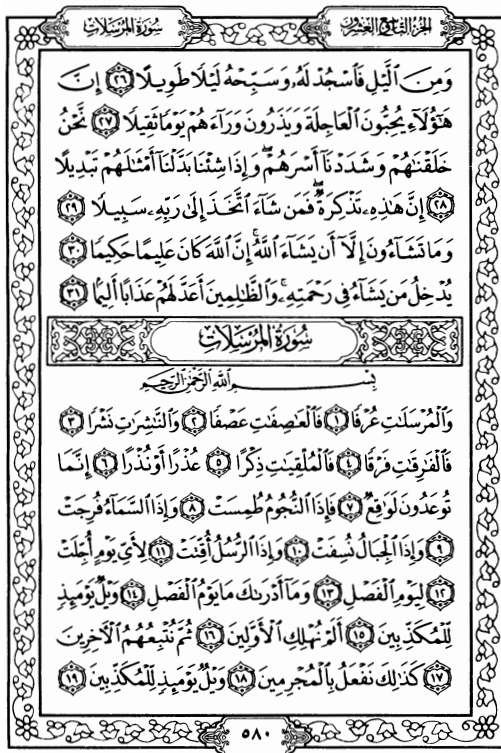 سُورَةُ المُرْسَلَات
الجُزْءُ التَّاسِعُ وَالعِشْرُونَ
وَمِنَ ٱلَّيۡلِ فَٱسۡجُدۡ لَهُۥ وَسَبِّحۡهُ لَيۡلٗا طَوِيلًا ٢٦ إِنَّ
هَٰٓؤُلَآءِ يُحِبُّونَ ٱلۡعَاجِلَةَ وَيَذَرُونَ وَرَآءَهُمۡ يَوۡمٗا ثَقِيلٗا ٢٧ نَّحۡنُ
خَلَقۡنَٰهُمۡ وَشَدَدۡنَآ أَسۡرَهُمۡۖ وَإِذَا شِئۡنَا بَدَّلۡنَآ أَمۡثَٰلَهُمۡ تَبۡدِيلًا
٢٨ إِنَّ هَٰذِهِۦ تَذۡكِرَةٞۖ فَمَن شَآءَ ٱتَّخَذَ إِلَىٰ رَبِّهِۦ سَبِيلٗا ٢٩
وَمَا تَشَآءُونَ إِلَّآ أَن يَشَآءَ ٱللَّهُۚ إِنَّ ٱللَّهَ كَانَ عَلِيمًا حَكِيمٗا ٣٠
يُدۡخِلُ مَن يَشَآءُ فِي رَحۡمَتِهِۦۚ وَٱلظَّٰلِمِينَ أَعَدَّ لَهُمۡ عَذَابًا أَلِيمَۢا ٣١
سُورَةُ المُرْسَلَاتِ
بِسۡمِ ٱللَّهِ ٱلرَّحۡمَٰنِ ٱلرَّحِيمِ
وَٱلۡمُرۡسَلَٰتِ عُرۡفٗا ١ فَٱلۡعَٰصِفَٰتِ عَصۡفٗا ٢ وَٱلنَّٰشِرَٰتِ نَشۡرٗا ٣
فَٱلۡفَٰرِقَٰتِ فَرۡقٗا ٤ فَٱلۡمُلۡقِيَٰتِ ذِكۡرًا ٥ عُذۡرًا أَوۡ نُذۡرًا ٦ إِنَّمَا
تُوعَدُونَ لَوَٰقِعٞ ٧ فَإِذَا ٱلنُّجُومُ طُمِسَتۡ ٨ وَإِذَا ٱلسَّمَآءُ فُرِجَتۡ
٩ وَإِذَا ٱلۡجِبَالُ نُسِفَتۡ ١٠ وَإِذَا ٱلرُّسُلُ أُقِّتَتۡ ١١ لِأَيِّ يَوۡمٍ أُجِّلَتۡ
١٢ لِيَوۡمِ ٱلۡفَصۡلِ ١٣ وَمَآ أَدۡرَىٰكَ مَا يَوۡمُ ٱلۡفَصۡلِ ١٤ وَيۡلٞ يَوۡمَئِذٖ
لِّلۡمُكَذِّبِينَ ١٥ أَلَمۡ نُهۡلِكِ ٱلۡأَوَّلِينَ ١٦ ثُمَّ نُتۡبِعُهُمُ ٱلۡأٓخِرِينَ
١٧ كَذَٰلِكَ نَفۡعَلُ بِٱلۡمُجۡرِمِينَ ١٨ وَيۡلٞ يَوۡمَئِذٖ لِّلۡمُكَذِّبِينَ ١٩
٥٨٠